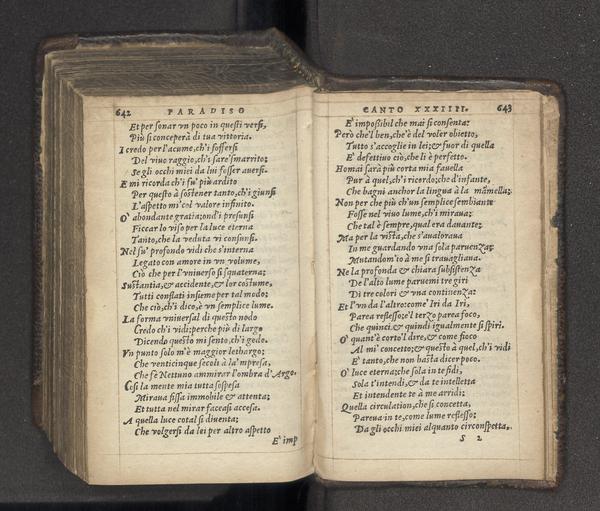 642 PARADISO
Et per sonar vn poco in questi versi,
Più si conceperà di tua vittoria.
I credo per l'acume, ch'i soffersi
Del viuo raggio, ch'i sare' smarrito;
Se gli occhi miei da lui fosser auersi.
E mi ricorda ch'i fu' più ardito
Per questo à sostener tanto, ch'i giunsi
L'aspetto mi col valore infinito.
O' abondante gratia; ond'i presunsi
Ficcar lo viso per la luce eterna
Tanto, che la veduta vi consunsi.
Nel su' profondo vidi che s'interna
Legato con amore in vn volume,
Ciò che per l'vniuerso si squaterna;
Sustantia, & accidente, & lor costume,
Tutti conflati insieme per tal modo;
Che ciò, ch'i dico, è vn semplice lume.
La forma vniuersal di questo nodo
Credo ch'i vidi; perche più di largo
Dicendo questo mi sento, ch'i godo.
Vn punto solo m'è maggior lethargo;
Che venticinque secoli à la'mpresa,
Che fè Nettuno ammirar l'ombra d'Argo.
Così la mente mia tutta sospesa
Miraua fissa immobile & attenta;
Et tutta nel mirar faceasi accesa.
A quella luce cotal si diuenta;
Che volgersi da lei per altro aspetto
E' imp
CANTO XXXIIII. 643
E' impossibil che mai si consenta:
Però che'l ben, che'è del voler obietto,
Tutto s'accoglie in lei; & fuor di quella
E' defettiuo ciò, che lì è perfetto.
Homai sarà più corta mia fauella
Pur à quel, ch'i ricordo; che d'infante,
Che bagni anchor la lingua à la mãmella;
Non per che più ch'un semplice sembiante
Fosse nel viuo lume, ch'i miraua;
Che tal è sempre, qual era dauante;
Ma per la vista, che s'aualoraua
In me guardando vna sola paruenza;
Mutandom'io à me si trauagliaua.
Ne la profonda & chiara subsistenza
De l'alto lume paruemi tre giri
Di tre colori & vna continenza:
Et l'vn da l'altro; come' Iri da Iri,
Parea reflesso; e'l terzo parea foco,
Che quinci & quindi igualmente si spiri.
O' quant'è corto'l dire, & come fioco
Al mi' concetto; & questo à quel, ch'i vidi
E' tanto, che non basta dicer poco.
O' luce eterna; che sola in te sidi,
Sola t'intendi, & da te intelletta
Et intendente te à me arridi;
Quella circulation, che sì concetta,
Pareua in te, come lume reflesso;
Da gli occhi miei alquanto circonspetta,
S 2